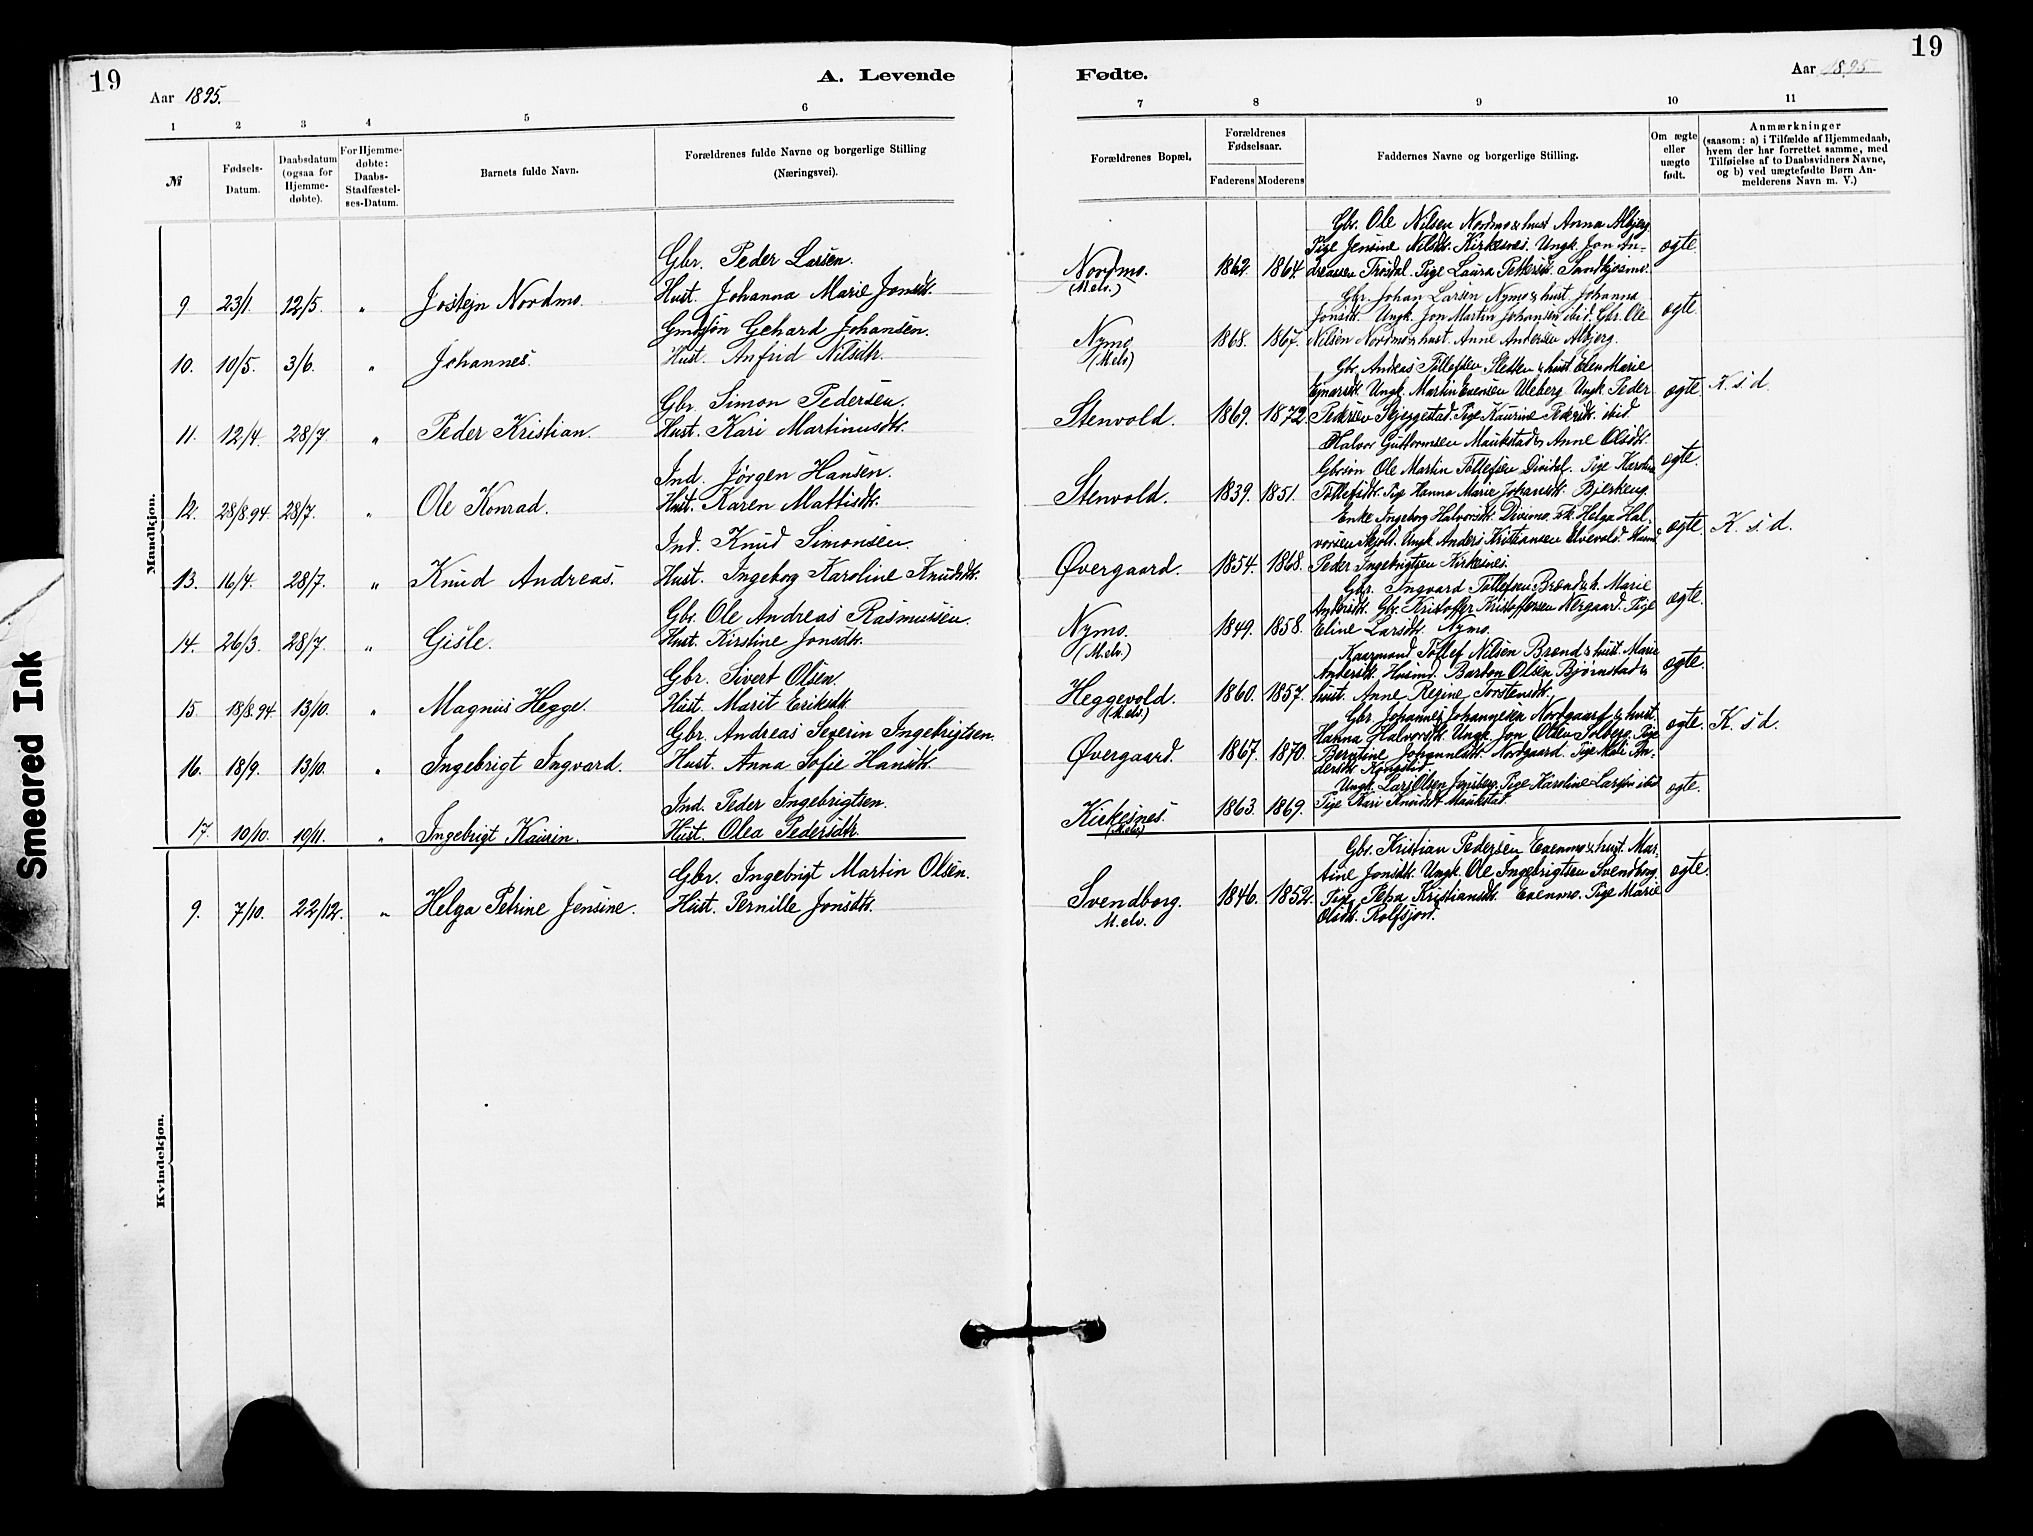 19
A. Levende
Fødte.
19
Aar 1895.
Aar 1895
1 2 3 4 5 6
7 8 9 10 11
№
Fødsels-
Datum.
Daabsdatum
(ogsaa for
Hjemme-
døbte).
For Hjemme-
døbte:
Daabs-
Stadfæstel-
ses-Datum.
Barnets fulde Navn.
Forældrenes fulde Navne og borgerlige Stilling
(Næringsvei).
Forældrenes Bopæl.
Forældrenes
Fødselsaar.
Faderens Moderens
Faddernes Navne og borgerlige Stilling.
Om ægte
eller
uægte
født.
Anmærkninger
(saasom: a) i Tilfælde af Hjemmedaab,
hvem der har forrettet samme, med
Tilføielse af to Daabsvidners Navne,
og b) ved uægtefødte Børn An-
melderens Navn m. V.)
Mandkjøn.
9. 23/1. 12/5. " Jostejn Nordmo.
Gbr. Peder Larsen.
Hust. Johanna Marie Jonsdtr.
Nordmo.
(M.elv.)
1862. 1864.
Gbr. Ole Nilsen Nordmo & hust Anna Albjerg
Pige Jensine Nilsdtr. Kirkesnes. Ungk. Jon An-
dreassen Trosdal. Pige Laura Pettersdtr. Sandkjosmo.
ægte.
10. 10/5. 3/6. " Johannes.
Gmdssøn Gehard Johansen.
Hust. Anfrid Nilsdtr.
Nymo
(M.elv)
1868. 1867.
Gbr. Johan Larsen Nymo & hust Johanna
Jonsdtr. Ungk. Jon Martin Johansen ibid. Gbr. Ole
Nilsen Nordmo & hust. Anne Andersen Albjerg.
ægte.
11. 12/4. 28/7. " Peder Kristian.
Gbr. Simon Pedersen.
Hust. Kari Martinusdtr.
Stenvold.
1869. 1872.
Gbr. Andreas Tollefsen Sletten & hust. Elen Marie
Ejnarsdtr. Ungk. Martin Evensen Uleberg. Ungk. Peder
Pedersen Skjeggestad. Pige Kaurine Pedersdtr. ibid
ægte. K. s. d.
12. 28/8.94. 28/7. " Ole Konrad.
Ind. Jørgen Hansen.
Hust. Karen Mattisdtr.
Stenvold.
1839. 1851.
Halvor Guttormsen Maukstad & Anne Olsdtr.
Gbrsøn Ole Martin Tollefsen Dividal. Pige Karoline
Tollefsdtr. Pige Hanna Marie Johansdtr. Bjerkeng.
ægte.
13. 16/4. 28/7. " Knud Andreas.
Ind. Knud Simonsen.
Hust. Ingeborg Karoline Knudsdtr.
Øvergaard.
1854. 1868.
Enke Ingeborg Halvorsdtr. Divimo. Helga Hal-
vorsen Skjold. Ungk. Anders Kristiansen Elvevold. Husmd
Peder Ingebrigtsen Kirkesnes.
ægte. K. s. d.
14. 26/3. 28/7. " Gisle.
Gbr. Ole Andreas Rasmussen.
Hust. Kirstine Jonsdtr.
Nymo.
(M.elv.)
1849. 1858.
Gbr. Ingvard Tollefsen Brend & h. Marie
Andersdtr. Gbr. Kristoffer Kristoffersen Nergaard. Pige
Eline Larsdtr. Nymo.
ægte.
15. 18/8.94 13/10. " Magnus Hegge.
Gbr. Sivert Olsen
Hust. Marit Eriksdtr.
Heggevold.
(M.elv.)
1860. 1857.
Kaarmand Tollef Nilsen Brend & hust. Marie
Andersdtr. Husmd. Barbon Olsen Bjørnstad &
hust. Anne Regine Torstensdtr.
ægte.
16. 18/9. 13/10. " Ingebrigt Ingvard.
Gbr. Andreas Severin Ingebrigtsen.
Hust. Anna Sofie Hansdtr.
Øvergaard.
1867. 1870.
Gbr. Johannes Johannesen Nordgaard & hust.
Hanna Halvorsdtr. Ungk. Jon Olsen Solberg. Pige
Berntine Johannesdtr. Nordgaard. Pige Mali An-
dersdtr. Kongslid.
ægte. K. s. d.
17. 10/10. 10/11. " Ingebrigt Kaurin.
Ind. Peder Ingebrigtsen.
Hust. Olea Pedersdtr.
Kirkesnes.
(M.elv)
1863. 1869.
Ungk. Lars Olsen Jensberg. Pige Karoline Larsen ibid
Pige Kari Knudsdtr. Maukstad.
ægte.
Kvindekjøn.
9. 7/10. 22/12. " Helga Petrine Jensine.
Gbr. Ingebrigt Martin Olsen.
Hust. Pernille Jonsdtr.
Svendborg.
M.elv.
1846. 1852.
Gbr. Kristian Pedersen Evenmo & hust. Mar-
tine Jonsdtr. Ungk. Ole Ingebrigtsen Svendborg.
Pige Petra Kristiansdtr. Evenmo. Pige Marie
Olsdtr. Rolfsjord.
ægte.
Smeared Ink